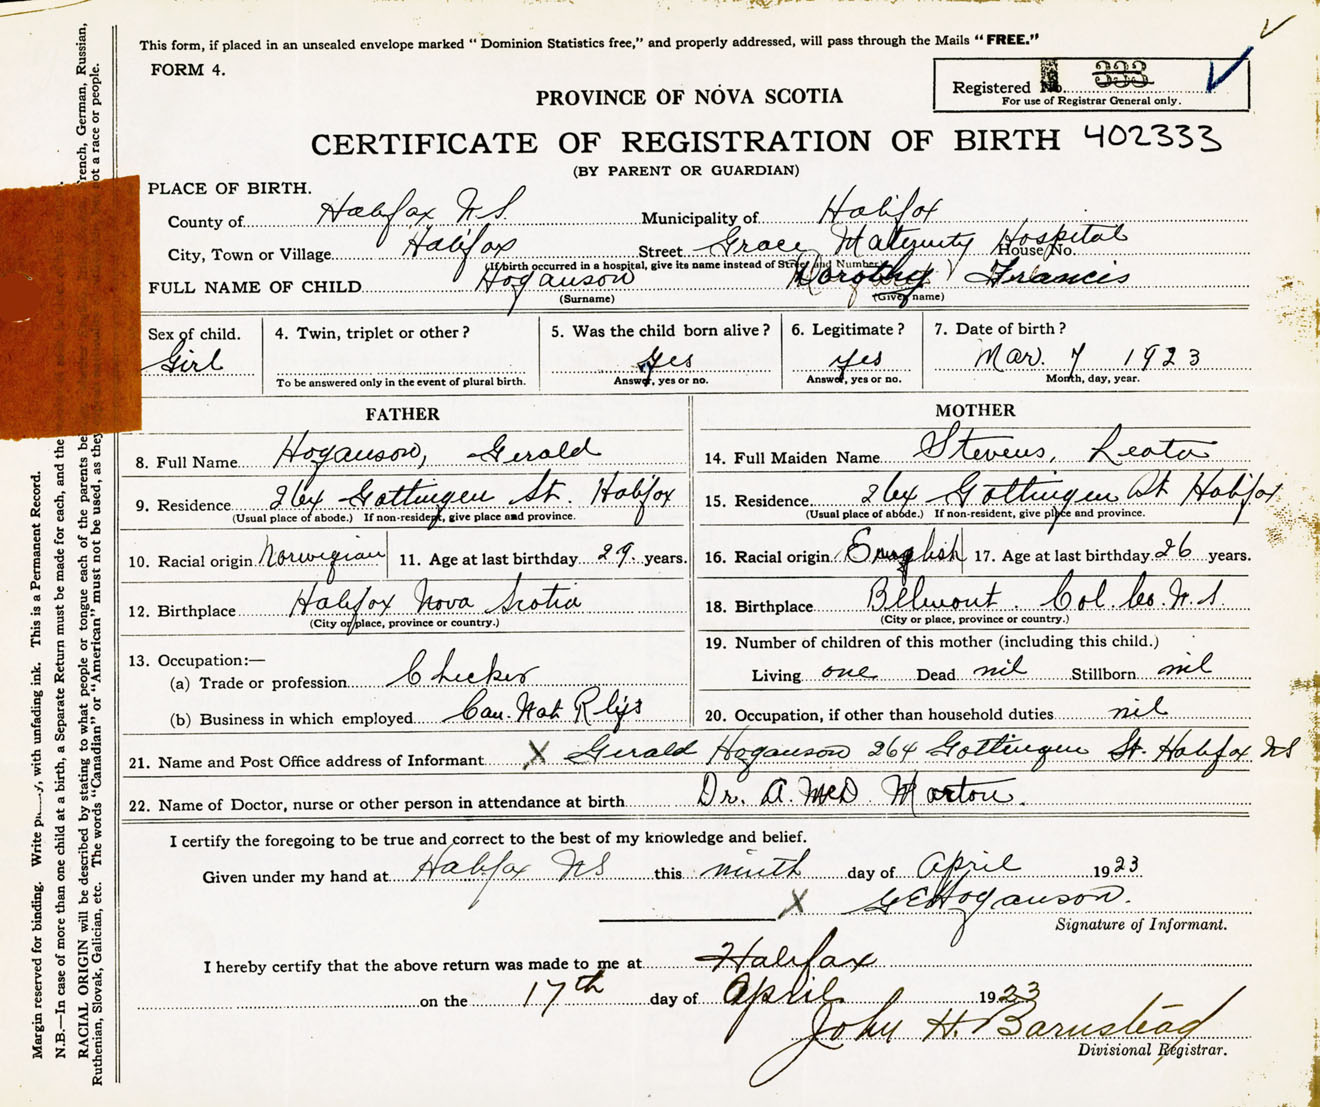 This form, if placed in an unsealed envelope marked "Dominion Statistics free," and properly addressed, will pass through the Mails "FREE."
FORM 4.
Registered No. 333
For use of Registrar General only.
PROVINCE OF NOVA SCOTIA
CERTIFICATE OF REGISTRATION OF BIRTH 402333
(BY PARENT OR GUARDIAN)
PLACE OF BIRTH.
County of Halifax N.S. Municipality of Halifax
City, Town or Village Halifax Street Grace Maternity Hospital House No.
(If birth occurred in a hospital, give its name instead of Street and Number)
FULL NAME OF CHILD Hoganson Dorothy Francis
(Surname) (Given name)
Sex of child. 4. Twin, triplet or other? 5. Was the child born alive? 6. Legitimate? 7. Date of birth?
Girl Yes Yes Mar. 7 1923
To be answered only in the event of plural birth. Answer, yes or no. Answer, yes or no. Month, day, year.
FATHER
8. Full Name Hoganson, Gerald
9. Residence 264 Gottingen St. Halifax
(Usual place of abode.) If non-resident, give place and province.
10. Racial origin Norwegian 11. Age at last birthday 29 years.
12. Birthplace Halifax Nova Scotia
(City or place, province or country.)
13. Occupation:—
(a) Trade or profession Checker
(b) Business in which employed Can. Nat Rlys
MOTHER
14. Full Maiden Name Stevens, Leata
15. Residence 264 Gottingen St Halifax
(Usual place of abode.) If non-resident, give place and province.
16. Racial origin English 17. Age at last birthday 26 years.
18. Birthplace Belmont. Col. Co. N.S.
(City or place, province or country.)
19. Number of children of this mother (including this child.)
Living one Dead nil Stillborn nil
20. Occupation, if other than household duties nil
21. Name and Post Office address of Informant X Gerald Hoganson 264 Gottingen St. Halifax NS
22. Name of Doctor, nurse or other person in attendance at birth Dr. A. McD Morton.
I certify the foregoing to be true and correct to the best of my knowledge and belief.
Given under my hand at Halifax NS this ninth day of April 1923
X G E Hoganson.
Signature of Informant.
I hereby certify that the above return was made to me at Halifax
on the 17th day of April 1923
John H. Barnstead
Divisional Registrar.
Margin reserved for binding. Write with unfading ink. This is a Permanent Record.
N.B.—In case of more than one child at a birth, a Separate Return must be made for each, and the
RACIAL ORIGIN will be described by stating to what people or tongue each of the parents French, German, Russian,
Ruthenian, Slovak, Galician, etc. The words "Canadian" or "American" must not be used, as they not a race or people.